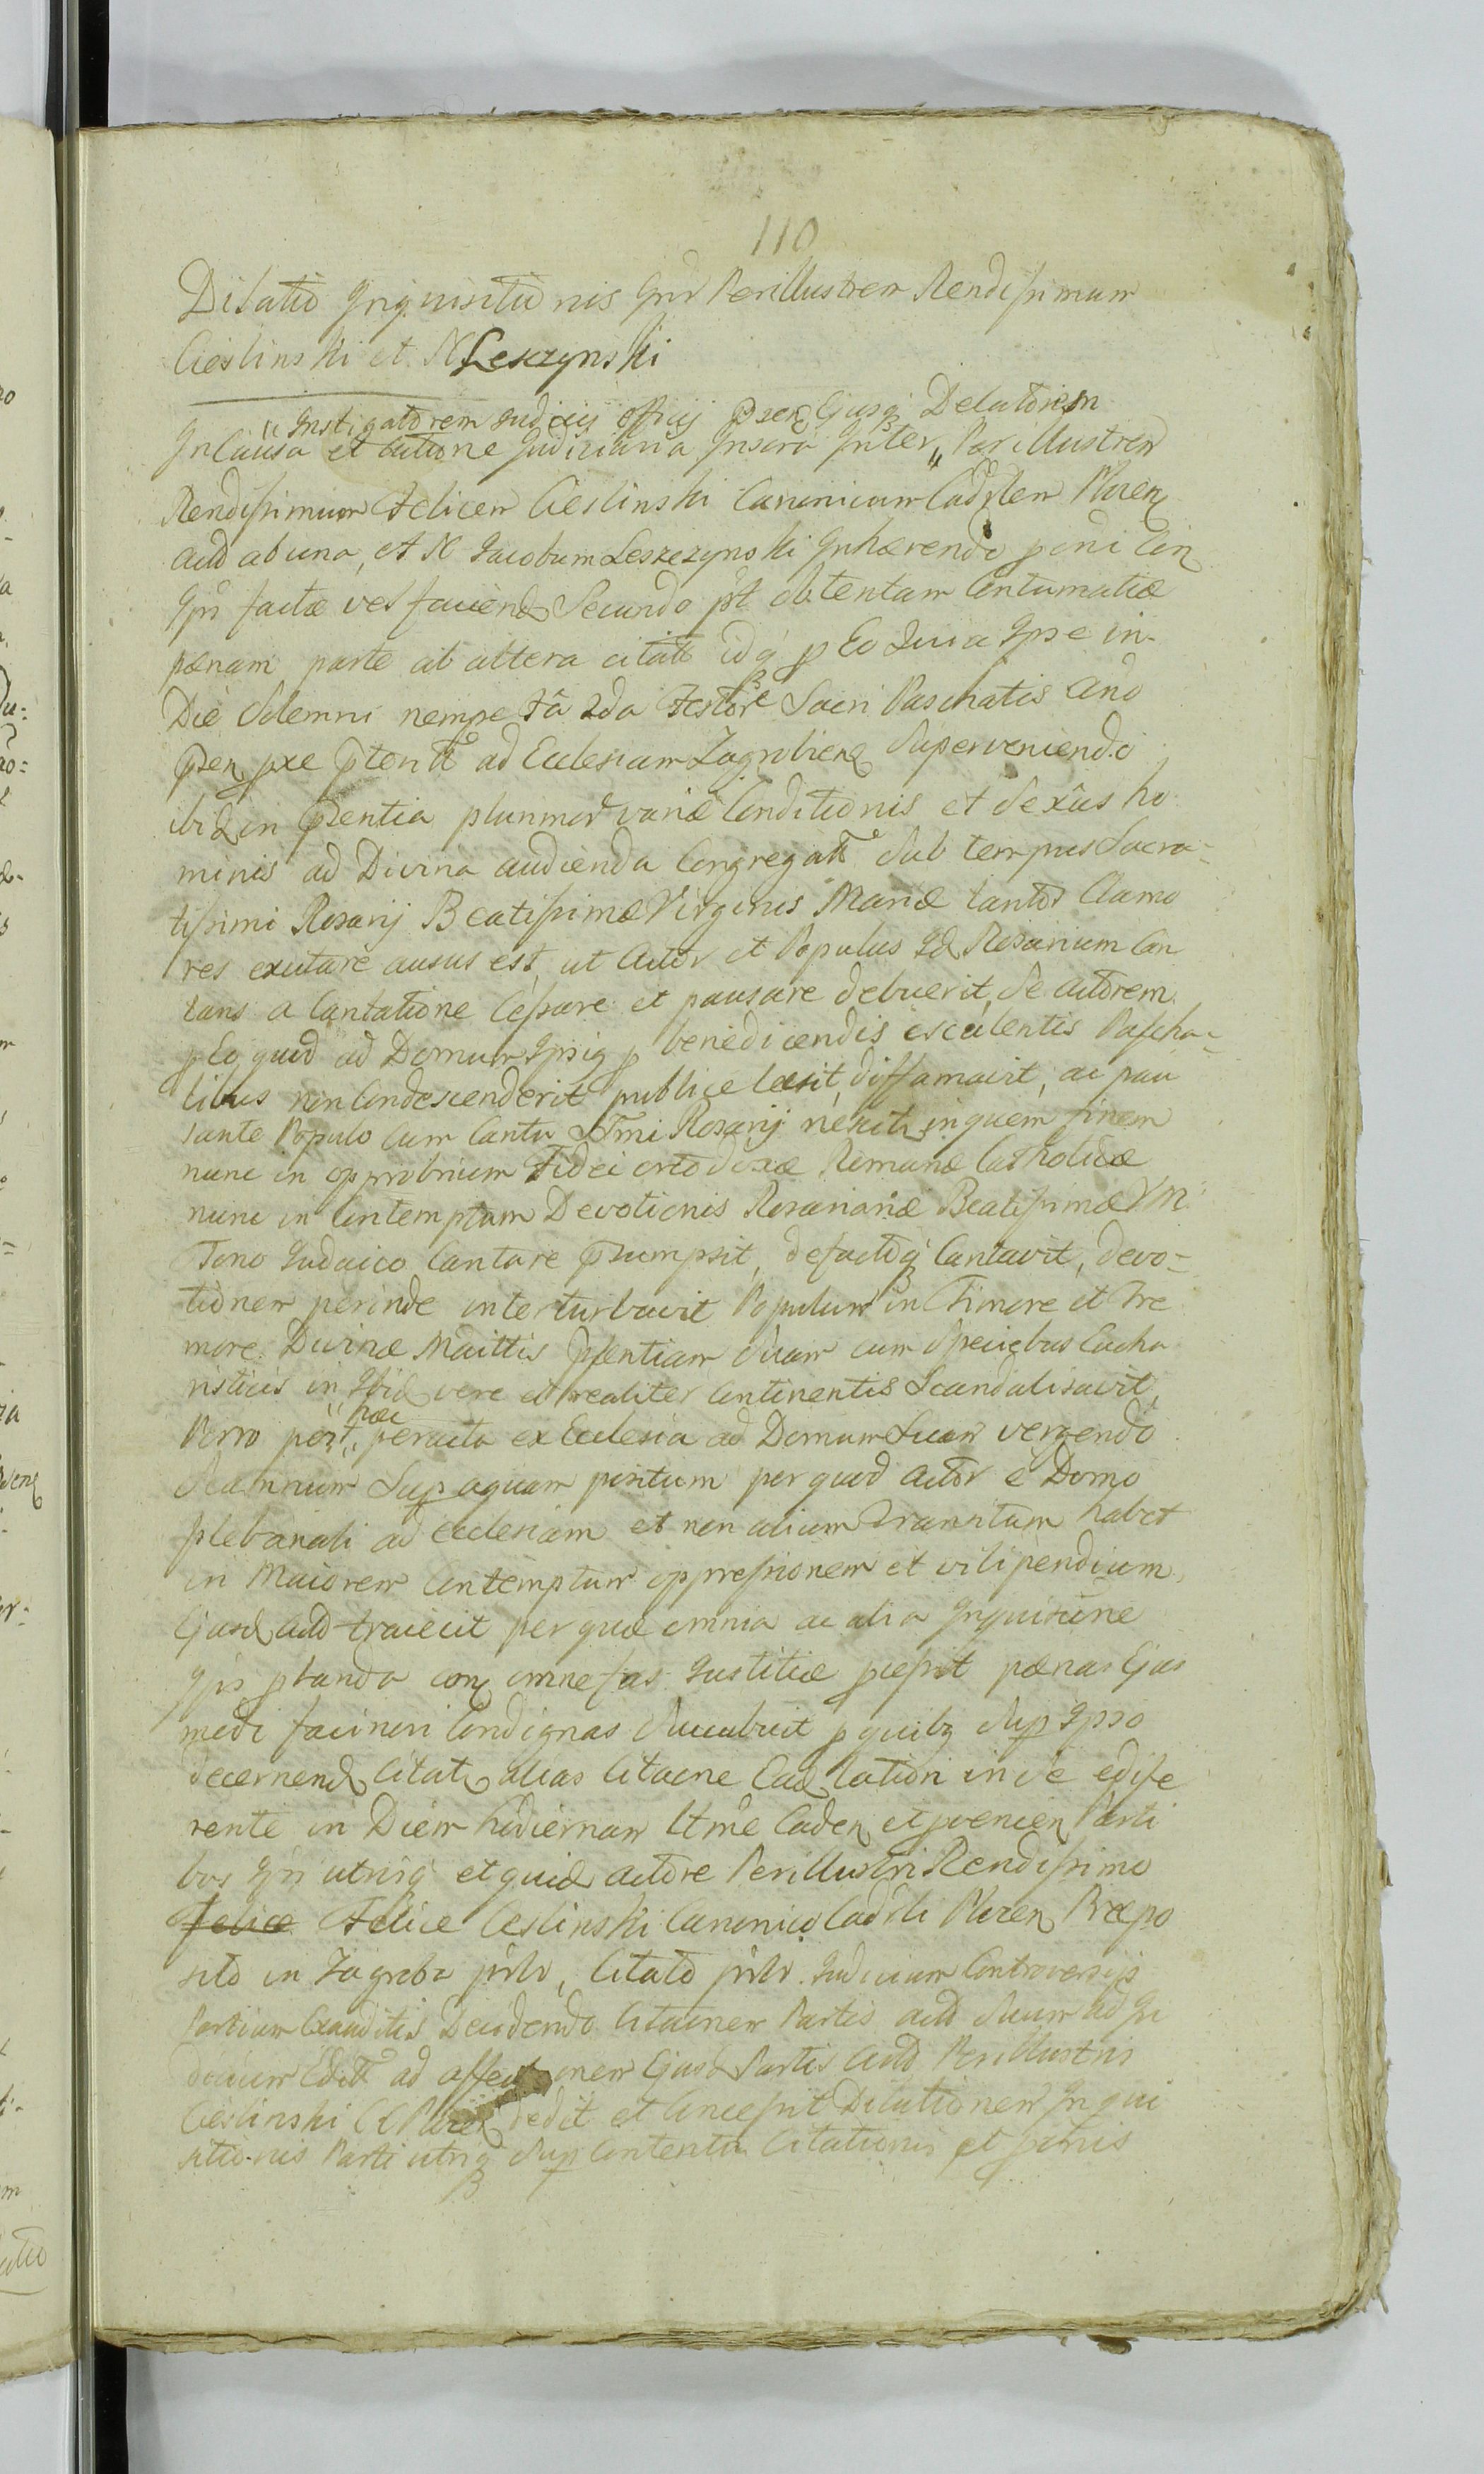 110
Dilatio Inquisitionis Inr Perillustrem Rendissimum
Cieslinski et N Leszzynski
"Instigatorem Judicij Officij Psen Ejusq Delatorem
In Causa et actione Judiciaria Inscra Inter " Perillustrem
Rendissimum Felicem Cieslinski Canonicum Cadrlem Plocen
actd ab una, et N Jacobum Leszczynski Inhærendo
Ipsi factæ vel faciend Secundo pt obtentam Contumatiæ
pænam parte ab altera citato idq p Eo Quia Ipse in
Die Solemni nempe Fâ 2da Festor Sacri Paschatis Ano
Psen pxe ad Ecclesiam Zagrobien Superveniendo
ibid in Psentia plurimor variæ Conditionis et Sexûs ho
minis ad Divina audienda Congregati Sub tempus Sacra=
tissimi Rosarij Beatissimæ Virginis Mariæ tantos Clamo
res excitare ausus est, ut Actor et Populus Id Rosarium Can
tans a Cantatione Cessare et pausare debuerit, Se Actorem
p Eo quod ad Domum Ipsig p benedicendis esculentis Pascha=
libus non Condescenderit publice læsit, diffamavit, ac pau
sante Populo Cum Cantu Sstmi Rosarij nescit in quem finem
nunc in opprobrium Fidei ortodoxæ Romanæ Catholicæ
nunc in Contemptum Devotionis Rosarianæ Beatissimæ VM
Tono Judaico Cantare Psumpsit, defactoq Cantavit, devo=
tionem perinde interturbavit Populum in Timore et Tre
more Divinæ Maittis Psentiam Suam cum Speciebus Eucha
risticis in Ibid vere et realiter Continentis Scandalisavit,
Porro post "hæc" peracta ex Ecclesia ad Domum Suam vergendo
Scamnum Sup aquam positum per quod Actor e Domo
plebanali ad Ecclesiam et non alium Transitum habet
in Maiorem Contemptum oppressionem et vilipendium
Ejusd Actd traiecit per quæ omnia ac alia Inquisitione
Ipsis pbanda con omne fas Justitiæ pcessit pænas Ejus
modi facinori Condignas Succubuit p quibq Sup Ipso
decernend Citato alias Citacne Cad lation in Se edisse
rente in Diem hodiernam ltme Caden et pvenien Parti
bus Ipsis utrisq et quid Actore Perillustri Rendissimo
Felice Felice Ceslinski Canonico Cadrli Plocen Præpo
sito in Zagroba pnlr, Citato pnlr. Judicium Controversijs
Partium Exauditis Decidendo Citacnem Partis actd Suum ad Ju
dicium Edit ad affectaonem Ejusd Partis Actd Perillustris
Cieslinski CC Plocen dedit et Concessit Dilationem Inqui
sitionis Parti utriq Sup Contenta Citationis et